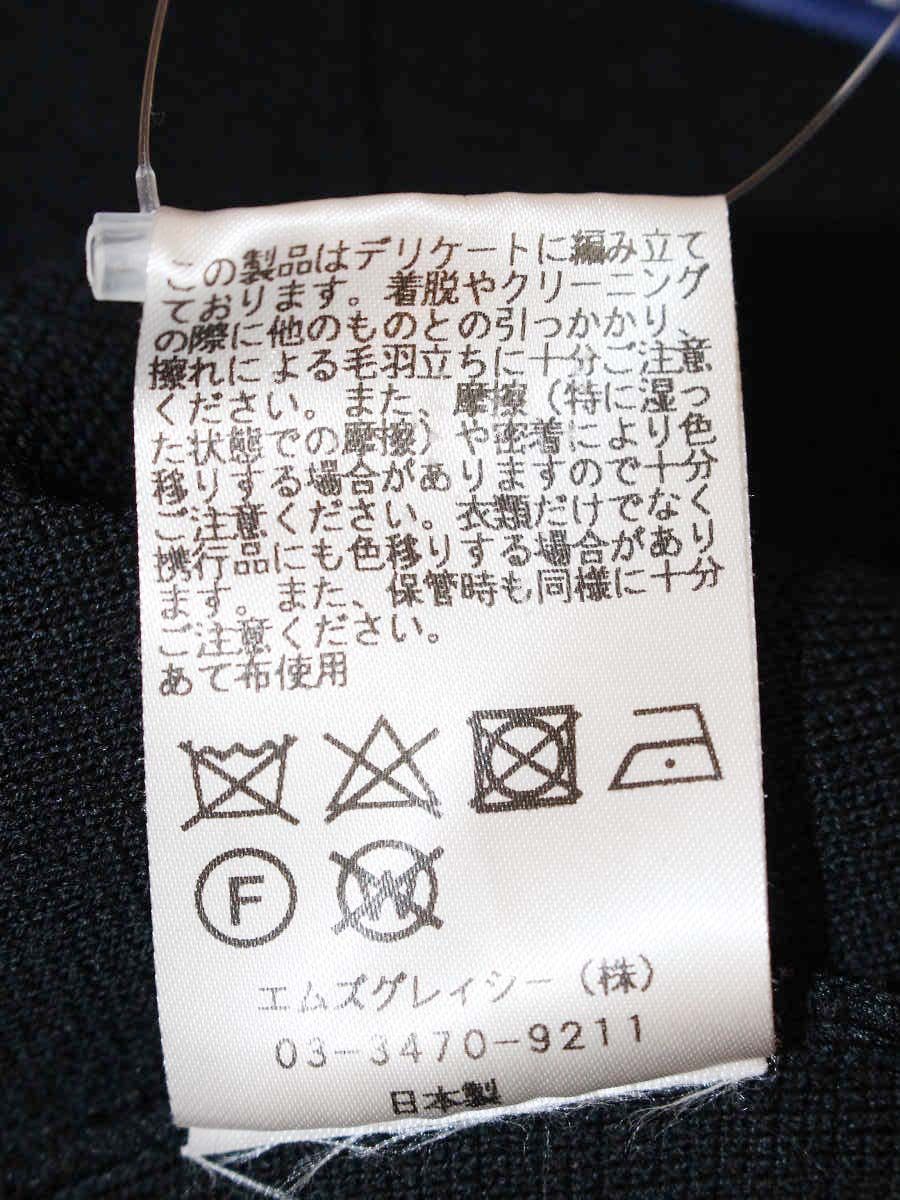 この製品はデリケートに編み立て
ております。着脱やクリーニング
の際に他のものとの引っかかり、
擦れによる毛羽立ちに十分ご注意
ください。また、摩擦（特に湿っ
た状態での摩擦）や密着により色
移りする場合がありますので十分
ご注意ください。衣類だけでなく
携行品にも色移りする場合があり
ます。また、保管時も同様に十分
ご注意ください。
あて布使用
F
W
エムズグレイシー（株）
03-3470-9211
日本製